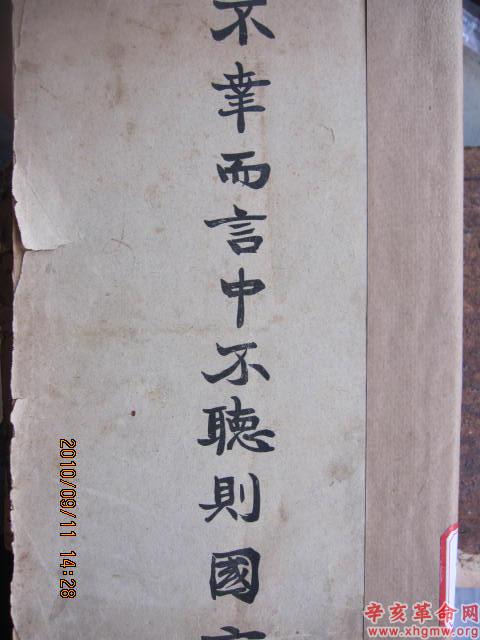 不幸而言中不聽則國
2010/09/11 14:28
辛亥革命网
www.xhgmw.org